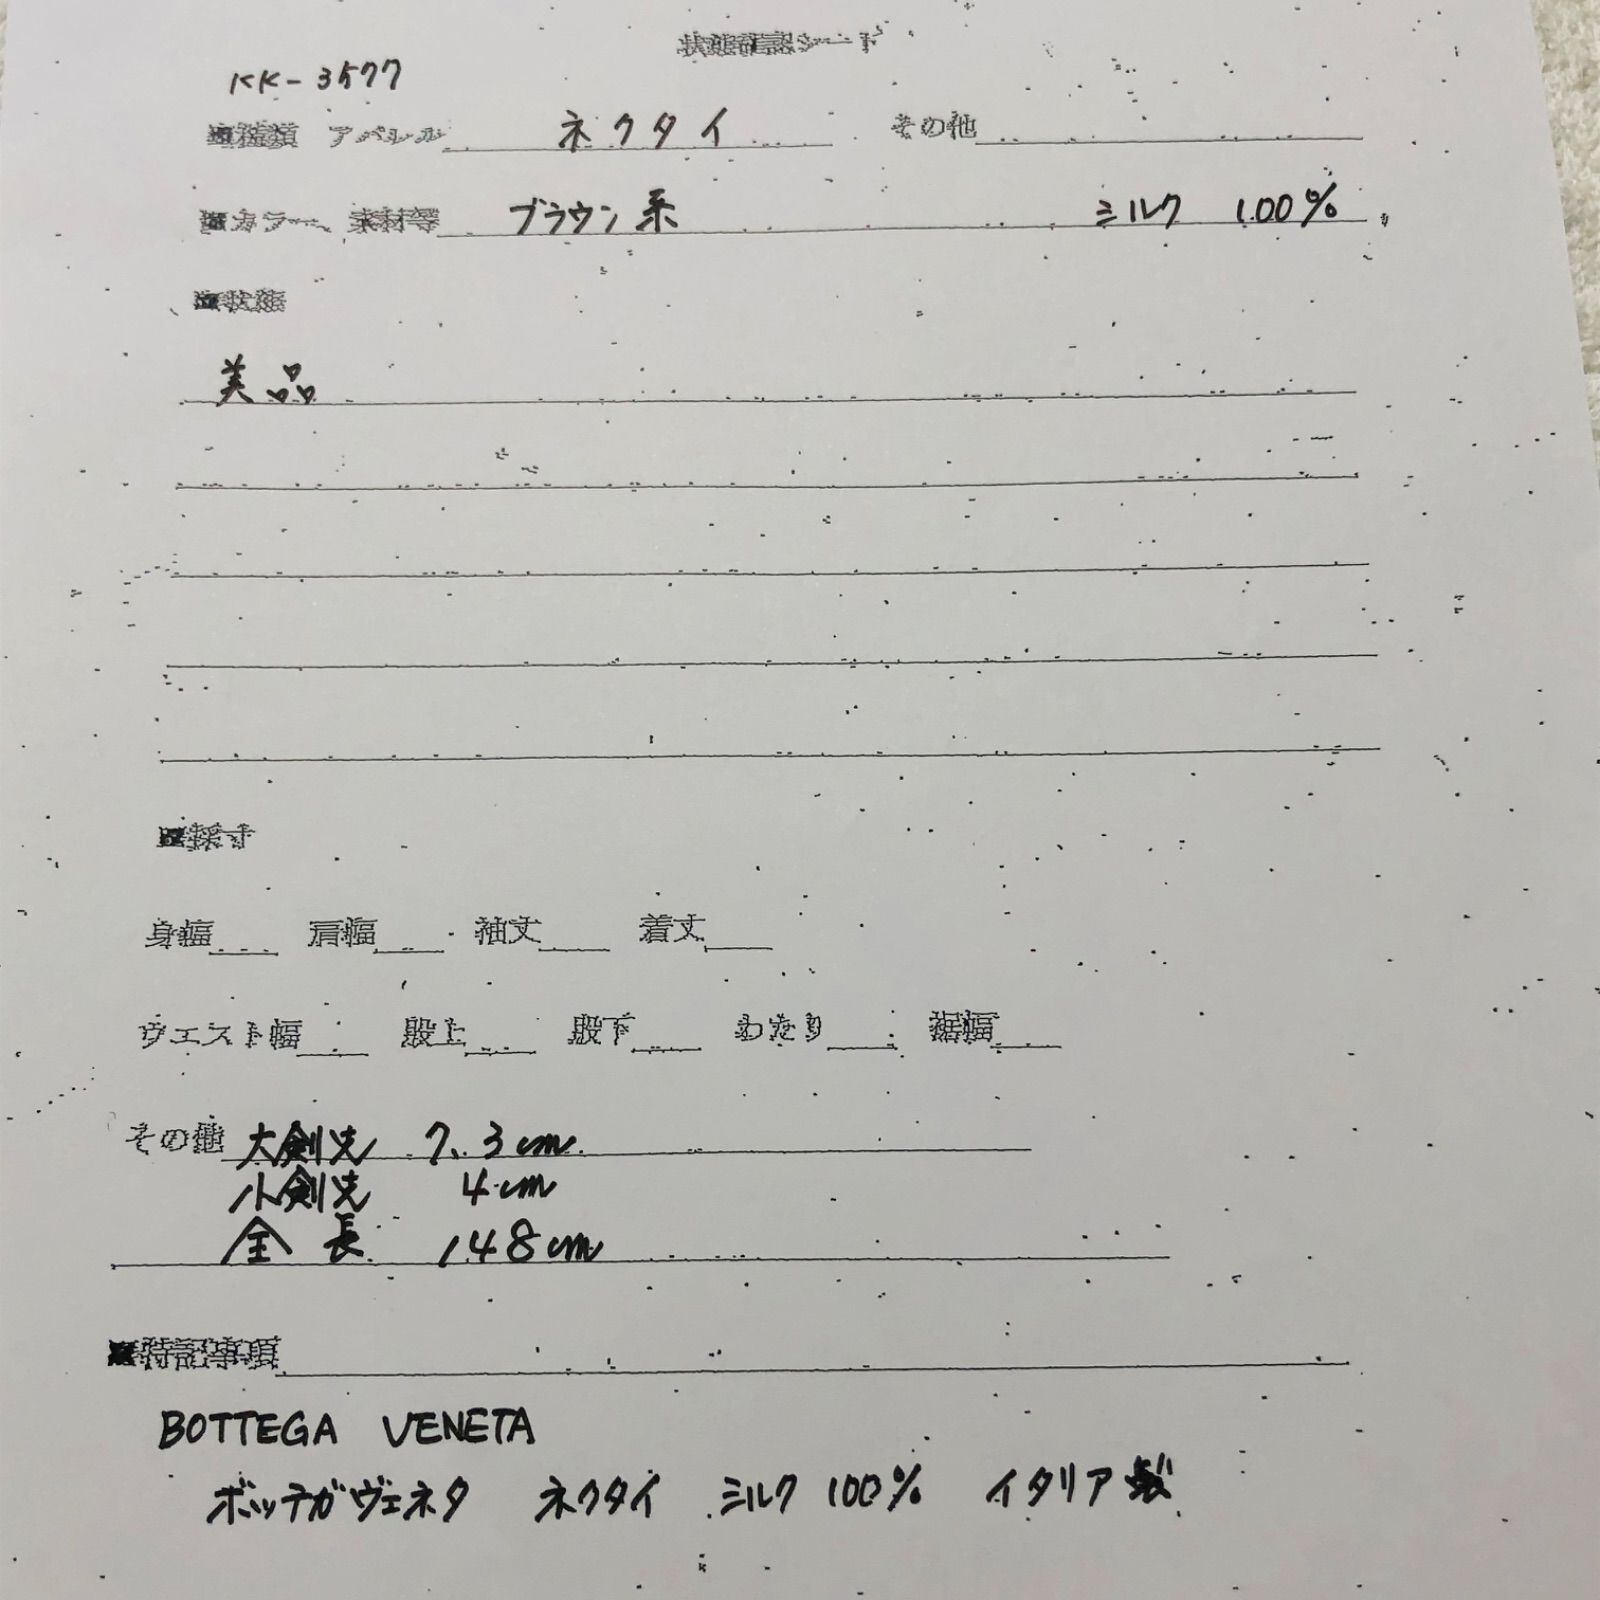 状態確認シート
KK-3577
■種類 アパレル ネクタイ その他
■カラー、素材等 ブラウン系 ミルク 100%
■状態
美品
■採寸
身幅 肩幅 袖丈 着丈
ウエスト幅 股上 股下 わたり 裾幅
その他 大剣先 7.3cm
小剣先 4cm
全長 148cm
■特記事項
BOTTEGA VENETA
ボッテガヴェネタ ネクタイ ミルク 100% イタリア製